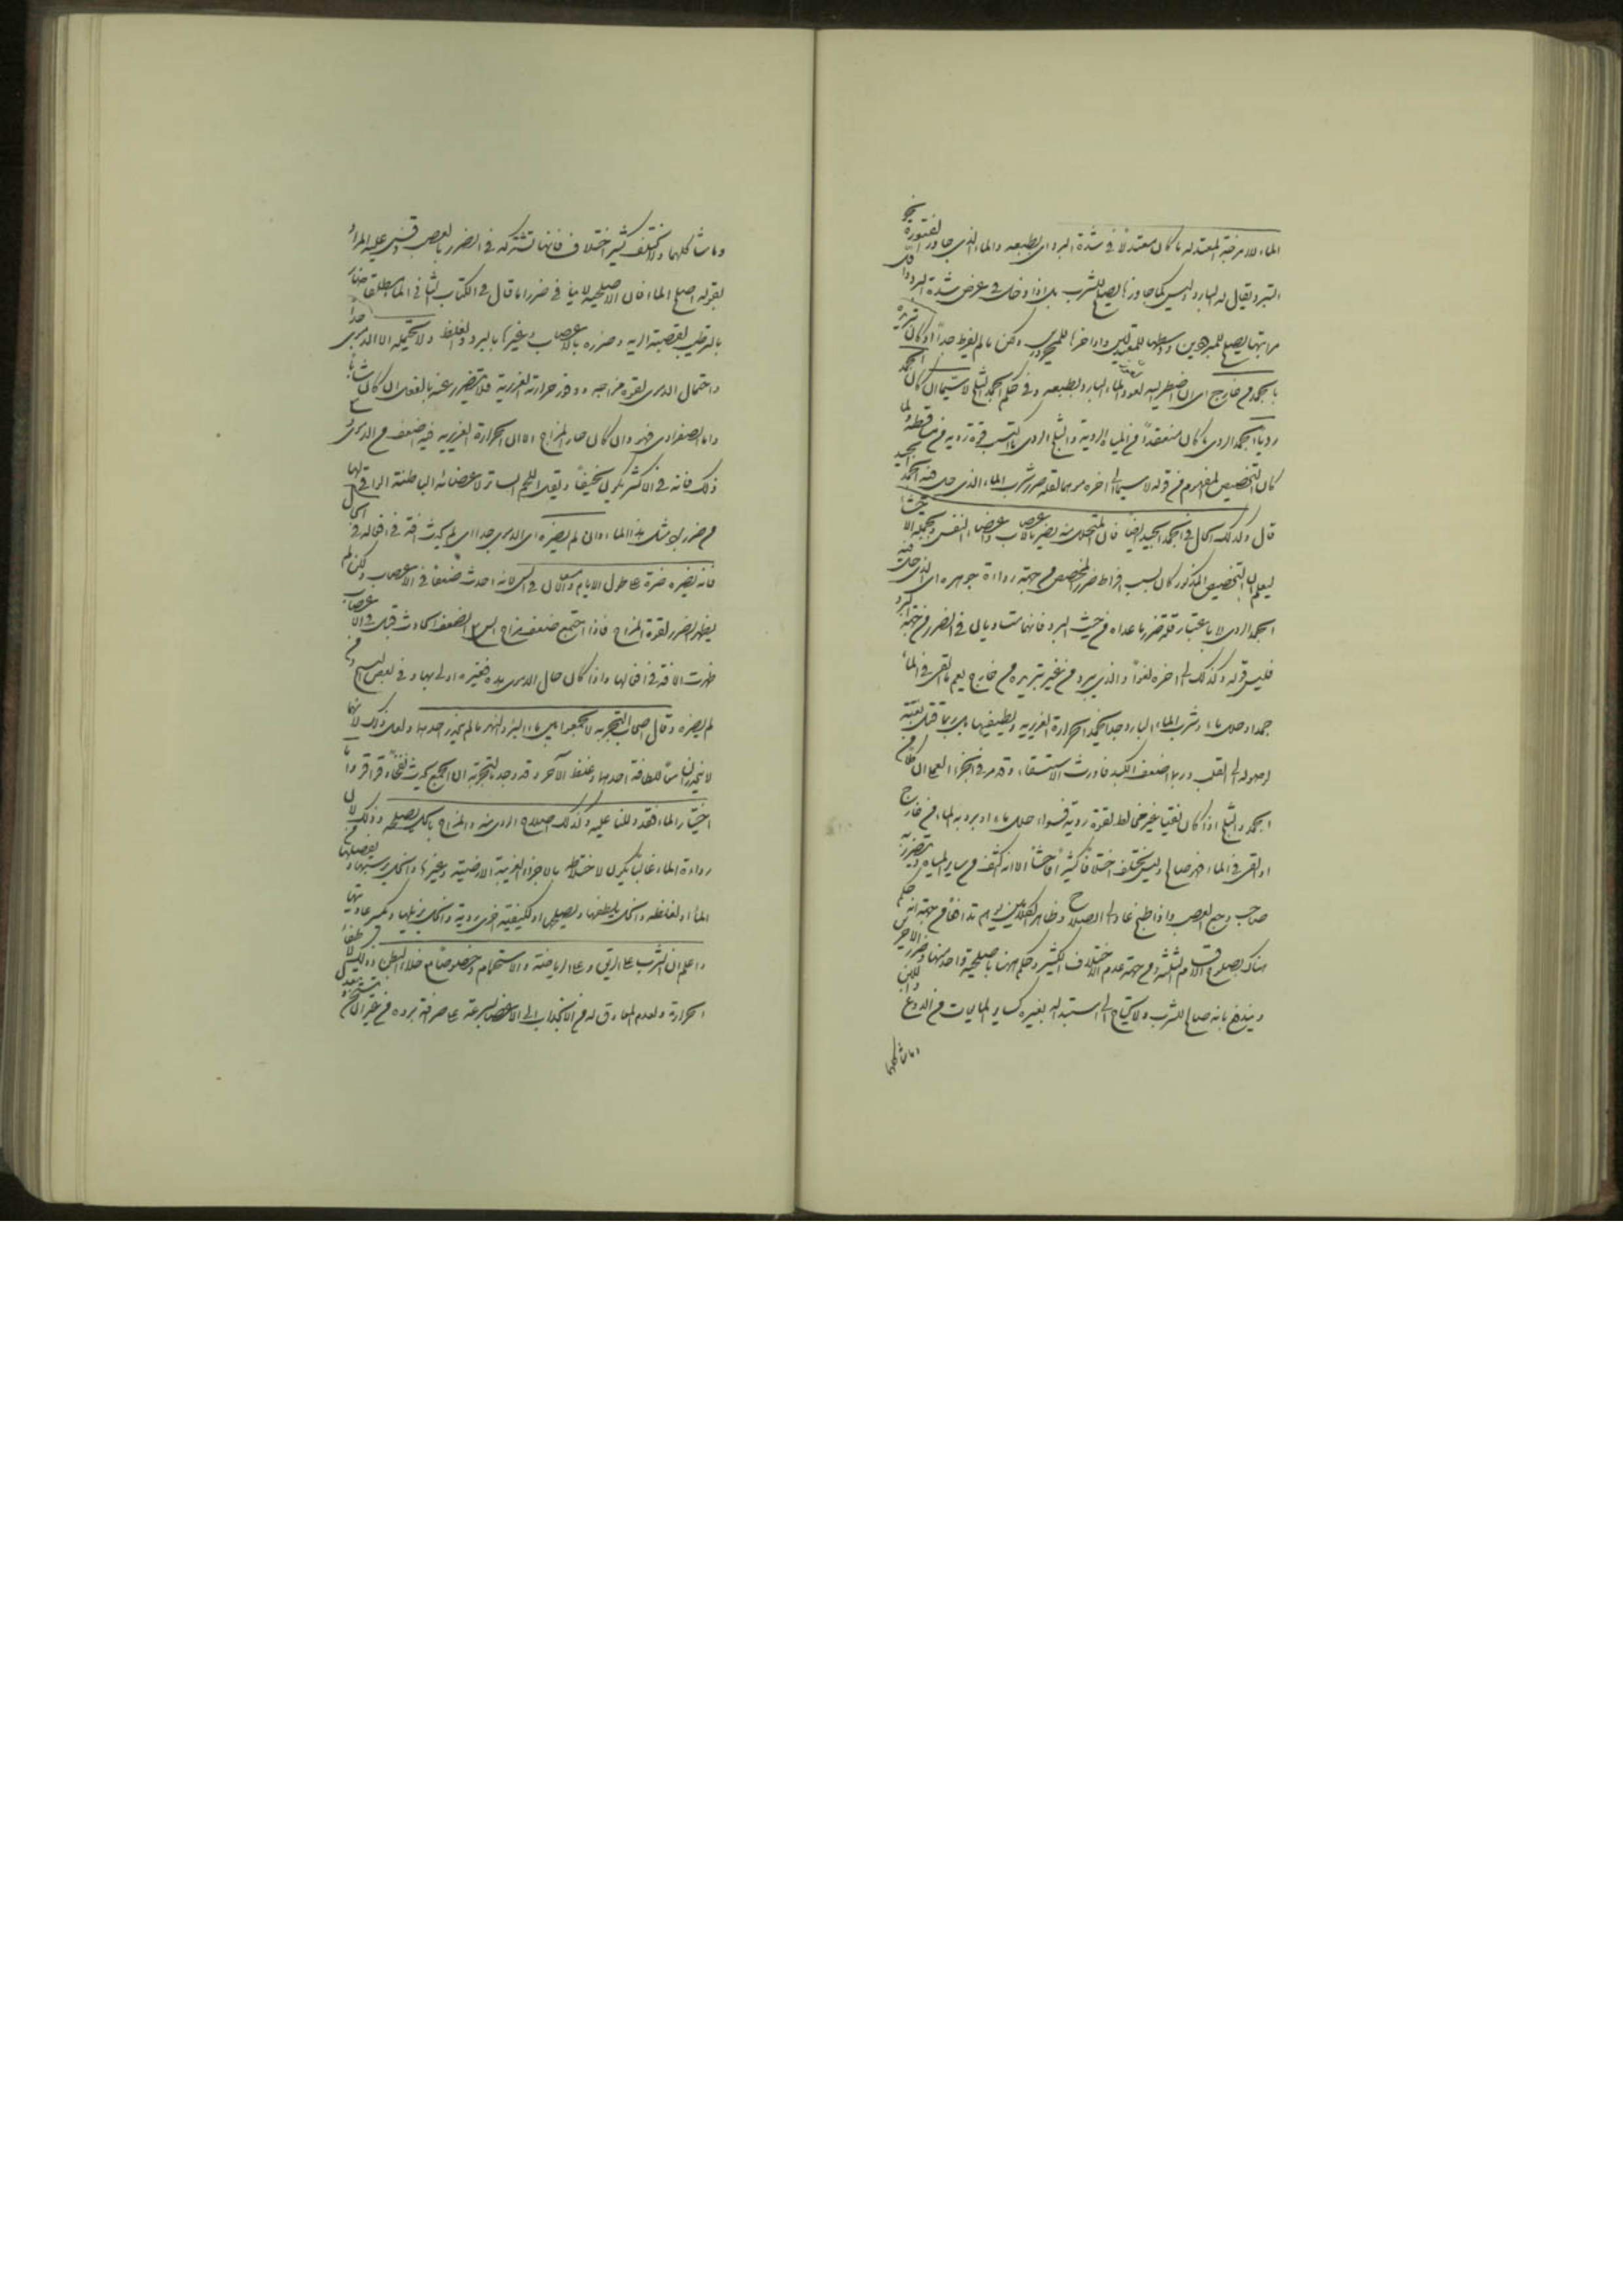 الماء لا مرخبة المعتدله ما كان معتدلا في شدة البرد اى بطبعه والماء الذى جاوز الفتورة
التبرد يقال له البارد وليس كما جاوزها يصلح للشرب بل اذا دخل في عرض شدة البرد
مراتبها يصلح للمبرودين واوسطها للمعتدلين واواخرها للمحرورين ولكن ما لم يفرط جدا او كان تبريده
بالجمد من خارج اى ان اضطر اليه لعوز الماء البارد بطبعه وفي حكم الجمد الثلج لا سيما ان كان الجمد
رديا والجمد الردى ما كان منعقدا من المياه الردية والثلج الردى ما اكتسب قوة ردية من مساقطه ولما
كان التخصيص المفهوم من قوله لا سيما الى اخره موهما لقلة ضرر شرب الماء الذى حل فيه الجمد الجيد
قال وكذلك الحال في الجمد الجيد ايضا فان المتحلل منه يضر بالاعصاب واعضاء النفس وبجملة الاحشا
ليعلم ان التخصيص المذكور كان بسبب افراط ضرر المخصص من جهة رداءة جوهره اى الذى حل فيه
الجمد الردى لا باعتبار قلة ضرر ما عداه من حيث البرد فانهما متساويان في الضرر من جهة البرد
فليس قوله وكذلك الى اخره لغوا والذى يبرد من غير تبريده من خارج يعم ما القى في الماء
جمد او حل ماء وشرب الماء البارد جدا يخمد الحرارة الغريزية ويطفيها وربما قتل بغتة
لوصوله الى القلب وربما اضعف الكبد فاورث الاستسقاء وقد مر في الجزء العملى ان كلا من
الجمد والثلج اذا كان نقيا غير مخالط لقوة ردية فسواء حلل ماء او برد به الماء من خارج
او القى في الماء فهو صالح وليس يختلف اختلافا كثيرا فاحشا الا انه اكثف من ساير المياه ويتضرر به
صاحب وجع العصب واذا طبخ عاد الى الصلاح وظاهر الكلامين يوهم تدافعا من جهة انه حكم
هناك بصلاح الاقسام الثلثة ومن جهة عدم الاختلاف الكثير وحكم ههنا باصلحية واحد منها وضرر الاخرين
ويندفع بانه صالح للشرب ولا يحتاج الى استبداله بغيره كساير المايعات من الدوغ واللبن
وما شاكلهما
وما شاكلهما ولا يختلف كثير اختلاف فانها تشترك في الضرر بالعصب وقس عليه المراد
بقوله اصلح الماء فان الاصلحية لا ينافي ضررا ما قال في الكتاب الثانى في الماء مطلقا
بالترطيب لقصبة الرية وضرره بالاعصاب وغيرها بالبرد والغلظ ولا يحتمله الا الدموى جدا
واحتمال الدموى لقوة مزاجه ووفور حرارته الغريزية فلا يتضرر عنه بالفعل ان كان شابا
واما الصفراوى فهو وان كان حار المزاج الا ان الحرارة الغريزية فيه اضعف من الدموى
ذلك فانه في الاكثر يكون نحيفا وبقل اللحم الساتر لاعضائه الباطنة الواقى لها
من ضرر برد مثل هذا الماء وان لم يضره اى الدموى جدا اى لم يحدث افة في افعاله في الحال
فانه يضره ضرة على طول الايام والامعان في السن لانه احدث ضعفا في الاعصاب ولكن لم
يظهر الضرر لقوة المزاج فاذا اجتمع ضعف مزاج السن والضعف الحادث قبل في الاعصاب
ظهرت الافة في افعالها واذا كان حال الدموى هذه فغيره اولى بها وفي بعض النسخ
لم يضره وقال اصحاب التجربة لا تجمعوا بين ماء البئر والنهر ما لم ينحدر احدهما ولعل ذلك لانهما
لا ينحدران معا للطافة احدهما وغلظ الآخر وقد وجد بالتجربة ان الجمع يحدث نفخا وقراقر واما
اختيار الماء فقد دللنا عليه وكذلك اصلاح الردى منه والمزاج بالخل يصلحه وذلك لان
رداءة الماء غالبا يكون لاختلاطه بالاجزاء الغريبة الارضية وغيرها والخل يرسبها ويفصلها من
الماء او لغلظه والخل يلطفها ويصلحها او لكيفية اخرى ردية والخل يزيلها ويكسر عاديتها
واعلم ان الشرب على الريق وعلى الرياضة والاستحمام وخصوصا مع خلاء البطن
الحرارة ولعدم العائق له من الانجذاب الى الاعضاء بسرعة على صرافة برده من غير ان